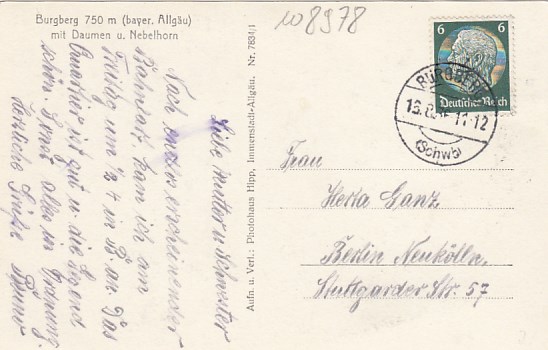 Burgberg 750 m (bayer. Allgäu)
mit Daumen u. Nebelhorn
108978
6 6
Deutsches Reich
BURGBERG
11-12
(Schwb)
Liebe Mutter u. Schwester
Nach endlos erscheinender
Bahnfahrt kam ich am
Freitag um 1/2 4 in B. an. Das
Quartier ist gut u. die Gegend
schön. Sonst alles in Ordnung
Herzliche Grüße
Aufn. u. Verl.: Photohaus Hipp, Immenstadt-Allgäu. Nr. 7834/1
Frau
Herta Ganz
Berlin Neukölln.
Stuttgarder Str. 57